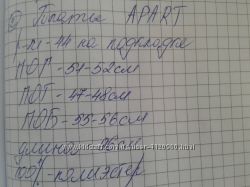 Платье APART
р-м-44 на подкладке
ПОГ-51-52см
ПОТ-47-48см
ПОБ-55-56см
длина-
100%-полиэстер